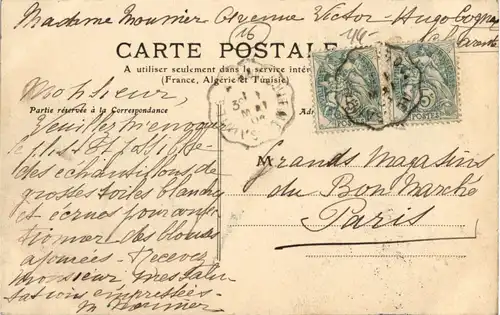 Madame Mounier Avenue Victor-Hugo Cognac
Charente
16
CARTE POSTALE
A utiliser seulement dans le service
(France, Algérie et Tunisie)
Partie réservée à la Correspondance
Monsieur,
Veuillez m'envoyer
des échantillons de
grosses toiles blanches
et écrues pour confec
tionner des blouses
ajourées. Recevez
Monsieur mes salu
tations empressées.
M Mounier
M
Grands Magasins
du Bon Marché
Paris
5
POSTES